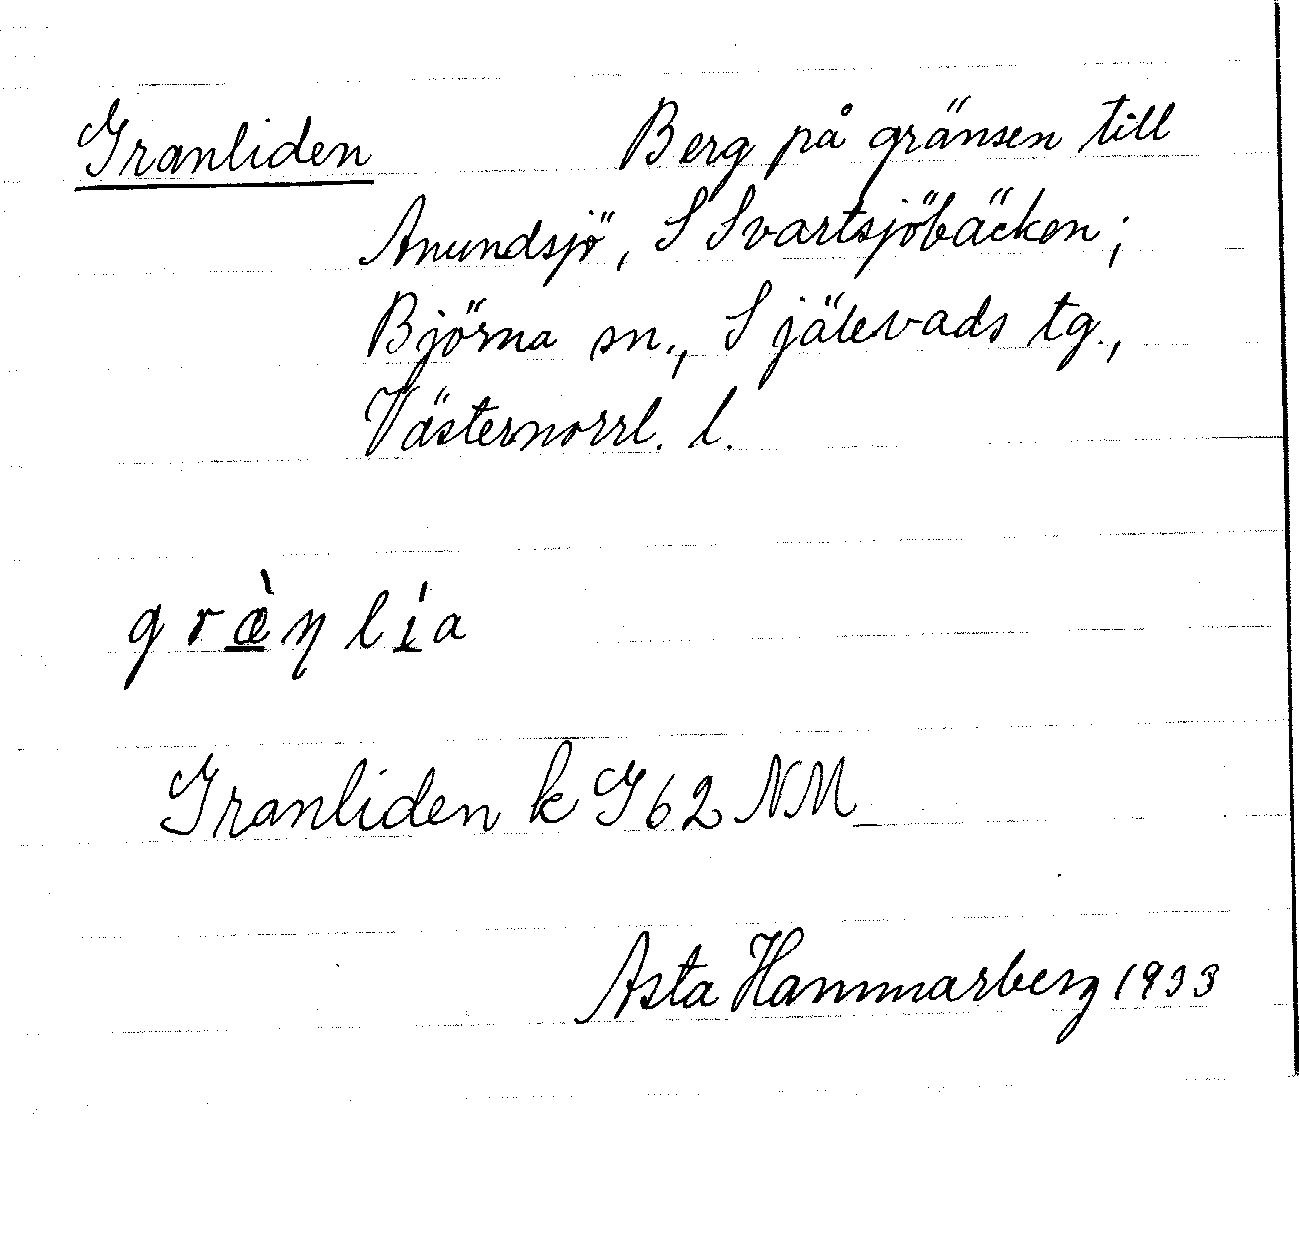 Granliden Berg på gränsen till
Anundsjö, S Svartsjöbäcken;
Björna sn., Själevads tg.,
Västernorrl. l.
græ̀ṇli̍a
Granliden k G62 NM
Asta Hammarberg 1933